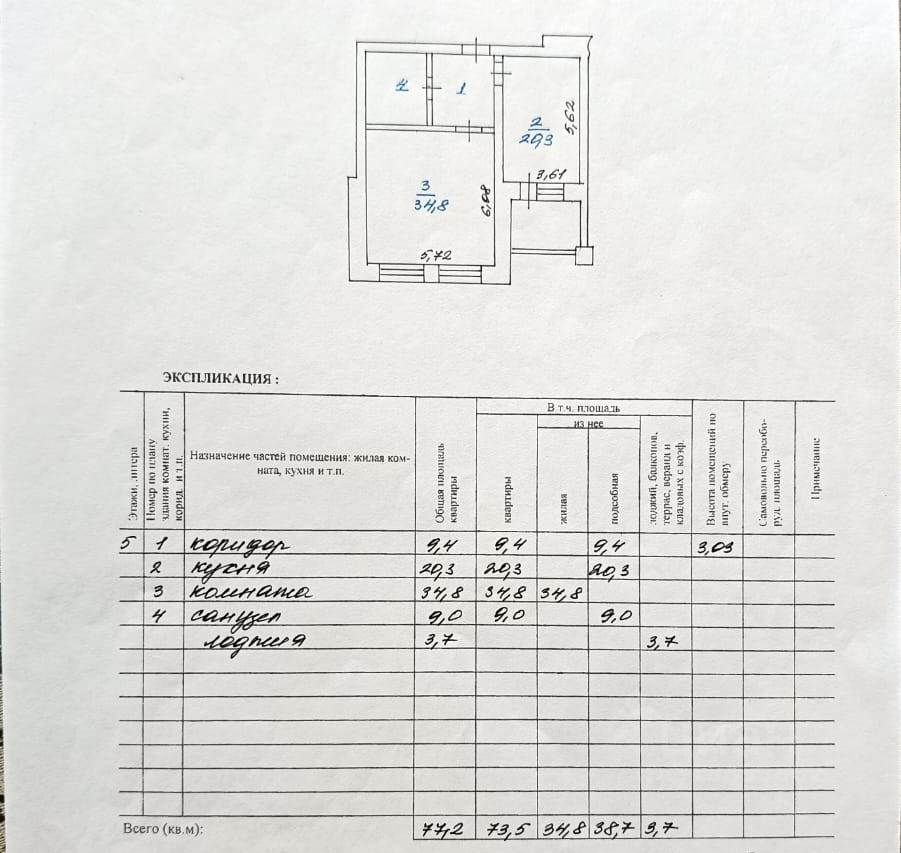 4
1
2
20,3
5,62
3,61
3
34,8
6,08
5,72
ЭКСПЛИКАЦИЯ :
Этажи, литера
Номер по плану здания комнат. кухни, корид. и т.п.
Назначение частей помещения: жилая комната, кухня и т.п.
Общая площадь квартиры
В т.ч. площадь
из нее
квартиры
жилая
подсобная
лоджий, балконов, террас, веранд и кладовых с коэф.
Высота помещений по внут. обмеру
Самовольно переобо- руд. площадь
Примечание
5 1 коридор 9,4 9,4 9,4 3,03
2 кухня 20,3 20,3 20,3
3 комната 34,8 34,8 34,8
4 санузел 9,0 9,0 9,0
лоджия 3,7 3,7
Всего (кв.м): 77,2 73,5 34,8 38,7 3,7